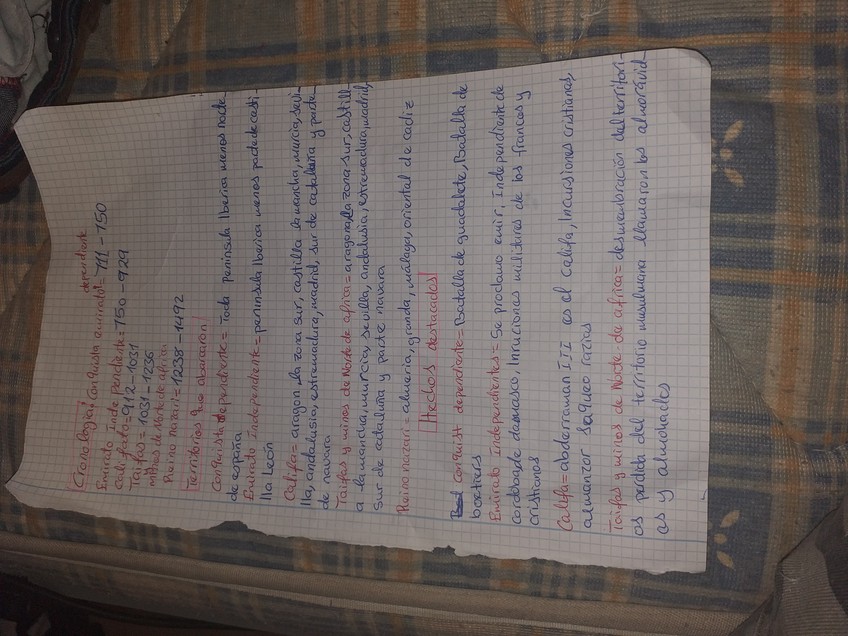 Cronología: Conquista emirato dependiente = 711-750
Emirato Independiente = 750-929
Califato = 912-1031
Taifas = 1031-1236
minos de Norte de africa
Reino nazari = 1238-1492
Territorios que abarcaron
Conquista dependiente = Toda peninsula Iberica menos norte
de españa
Emirato Independiente = peninsula Iberica menos parte de casti-
lla León
Califa = aragon, la zona sur, castilla la mancha, murcia, sevi-
lla, andalusia, estremadura, madrid, sur de cataluña y parte
de navara
Taifas y minos de Norte de africa = aragona, la zona sur, castill-
a la mancha, murcia, sevilla, andalusia, estremadura, madrid,
sur de cataluña y parte navara
Reino nazari = almeria, granda, málaga, oriental de cadiz
Hechos destacados
conquist dependiente = Batalla de guadalete, Batalla de
boetiers
Emirato Independientes = Se proclamo emir, Independiente de
cordobade damasco, Inruciones militares de los frances y
cristianos
Califa = abderraman III es el califa, Incursiones cristianas,
almanzor saqueo razias
Taifas y minos de Norte de africa = desmembración del territori-
os perdida del territorio musulmana llamaron los almorávid
es y almohades